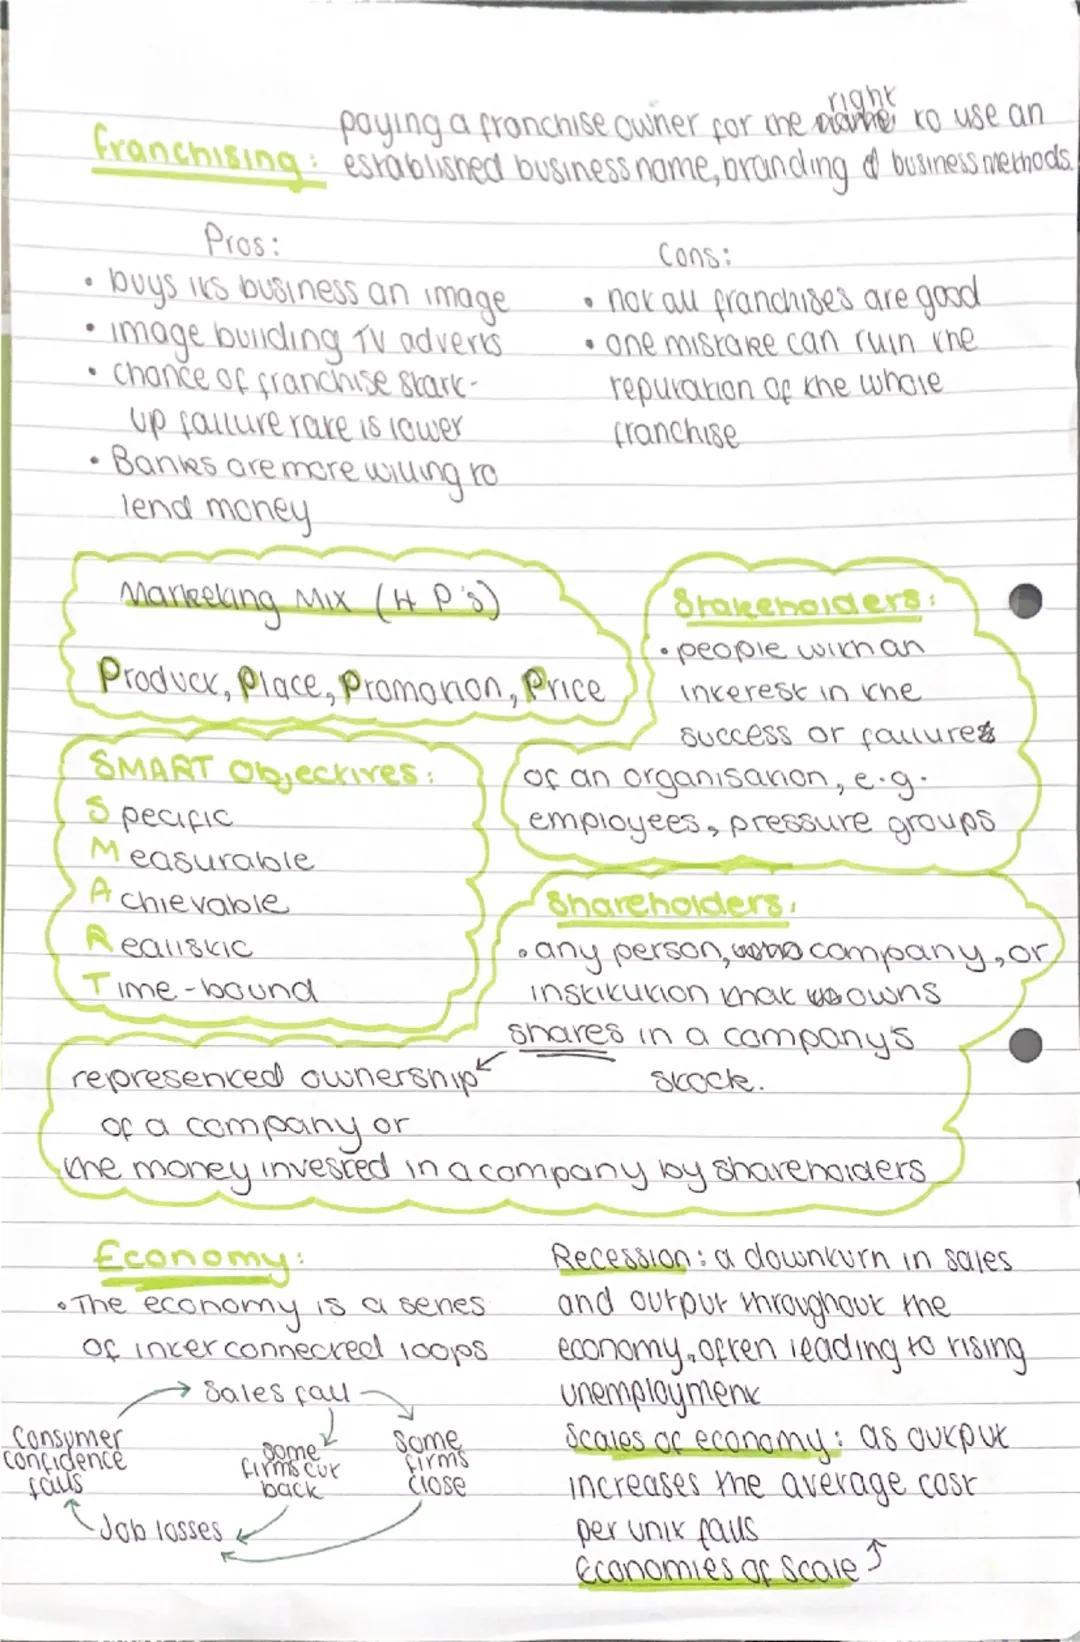 right
paying a franchise owner for the name to use an
franchising: established business name, branding & business methods.
Pros:
• buys its business an image
• image building TV adverts
• chance of franchise start-
up failure rate is lower
• Banks are more willing to
lend money
Cons:
• not all franchises are good
• one mistake can ruin the
reputation of the whole
franchise
Marketing Mix (4 P's)
Product, Place, Promotion, Price
Stakeholders:
• people with an
interest in the
success or failures
of an organisation, e.g.
employees, pressure groups
SMART Objectives:
Specific
Measurable
Achievable
Realistic
Time-bound
Shareholders:
• any person, company, or
institution that owns
shares in a company's
stock.
represented ownership
of a company or
the money invested in a company by shareholders
Economy:
• The economy is a series
of interconnected loops
Sales fall
Consumer
confidence
falls
some
firms cut
back
Some
firms
close
Job losses
Recession: a downturn in sales
and output throughout the
economy, often leading to rising
unemployment
Scales of economy: as output
increases the average cost
per unit falls
Economies of Scale